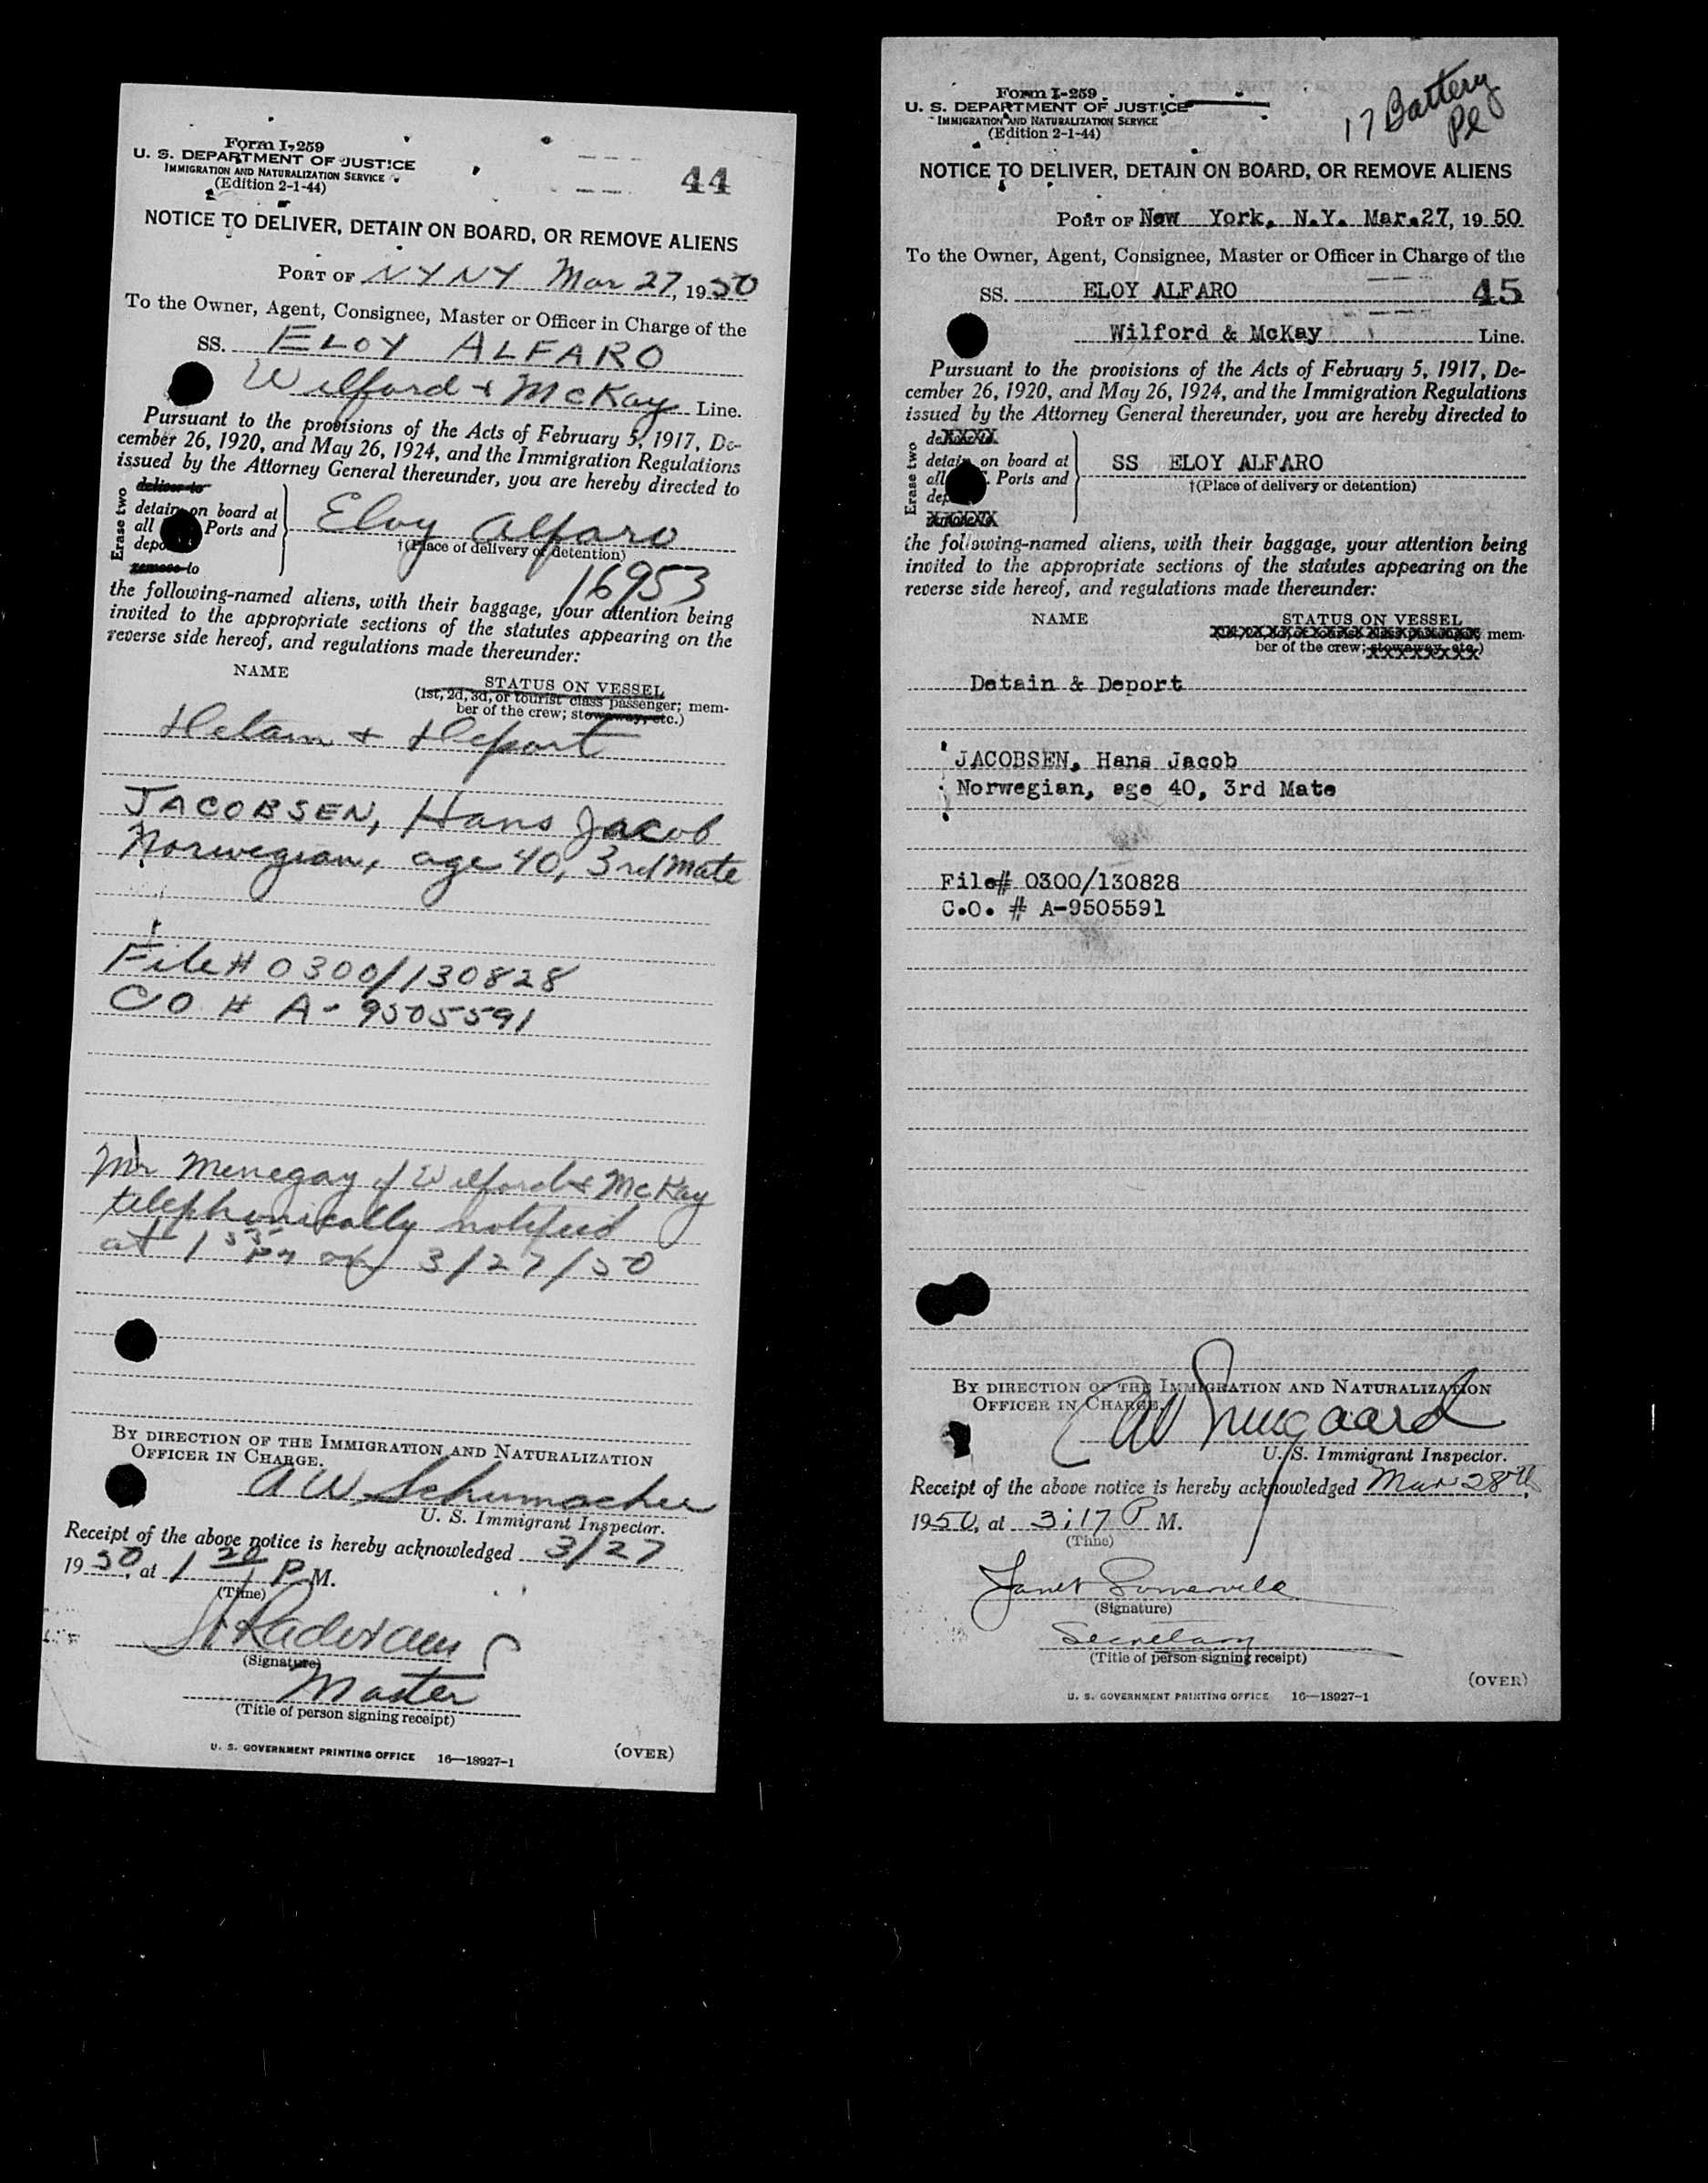 Form I-259
U. S. DEPARTMENT OF JUSTICE
IMMIGRATION AND NATURALIZATION SERVICE
(Edition 2-1-44)
44
NOTICE TO DELIVER, DETAIN ON BOARD, OR REMOVE ALIENS
PORT OF NYNY Mar 27, 1950
To the Owner, Agent, Consignee, Master or Officer in Charge of the
SS. ELOY ALFARO
Wilford & McKay Line.
Pursuant to the provisions of the Acts of February 5, 1917, De-
cember 26, 1920, and May 26, 1924, and the Immigration Regulations
issued by the Attorney General thereunder, you are hereby directed to
Erase two
deliver to
detain on board at
all Ports and
depo
remove to
Eloy Alfaro
†(Place of delivery or detention)
16953
the following-named aliens, with their baggage, your attention being
invited to the appropriate sections of the statutes appearing on the
reverse side hereof, and regulations made thereunder:
NAME
STATUS ON VESSEL
(1st, 2d, 3d, or tourist class passenger; mem-
ber of the crew; stowaway, etc.)
Detain & Deport
JACOBSEN, Hans Jacob
Norwegian, age 40, 3rd Mate
File # 0300/130828
CO # A-9505591
Mr Menegay of Wilford & McKay
telephonically notified
at 1 35 PM on 3/27/50
BY DIRECTION OF THE IMMIGRATION AND NATURALIZATION
OFFICER IN CHARGE.
A W Schumacher
U. S. Immigrant Inspector.
Receipt of the above notice is hereby acknowledged 3/27
1950, at 1 20 P M.
(Time)
(Signature)
Master
(Title of person signing receipt)
U. S. GOVERNMENT PRINTING OFFICE 16—18927-1
(OVER)
Form I-259
U. S. DEPARTMENT OF JUSTICE
IMMIGRATION AND NATURALIZATION SERVICE
(Edition 2-1-44)
17 Battery
Pl
NOTICE TO DELIVER, DETAIN ON BOARD, OR REMOVE ALIENS
PORT OF New York, N.Y. Mar.27, 1950
To the Owner, Agent, Consignee, Master or Officer in Charge of the
SS. ELOY ALFARO 45
Wilford & McKay Line.
Pursuant to the provisions of the Acts of February 5, 1917, De-
cember 26, 1920, and May 26, 1924, and the Immigration Regulations
issued by the Attorney General thereunder, you are hereby directed to
Erase two
detain on board at
all Ports and
dep
SS ELOY ALFARO
†(Place of delivery or detention)
the following-named aliens, with their baggage, your attention being
invited to the appropriate sections of the statutes appearing on the
reverse side hereof, and regulations made thereunder:
NAME
STATUS ON VESSEL
mem-
ber of the crew; stowaway, etc.)
Detain & Deport
JACOBSEN, Hans Jacob
Norwegian, age 40, 3rd Mate
File# 0300/130828
C.O. # A-9505591
BY DIRECTION OF THE IMMIGRATION AND NATURALIZATION
OFFICER IN CHARGE.
U. S. Immigrant Inspector.
Receipt of the above notice is hereby acknowledged Mar 28th,
1950, at 3:17 P M.
(Time)
Janet Somerville
(Signature)
Secretary
(Title of person signing receipt)
(OVER)
U. S. GOVERNMENT PRINTING OFFICE 16—18927-1